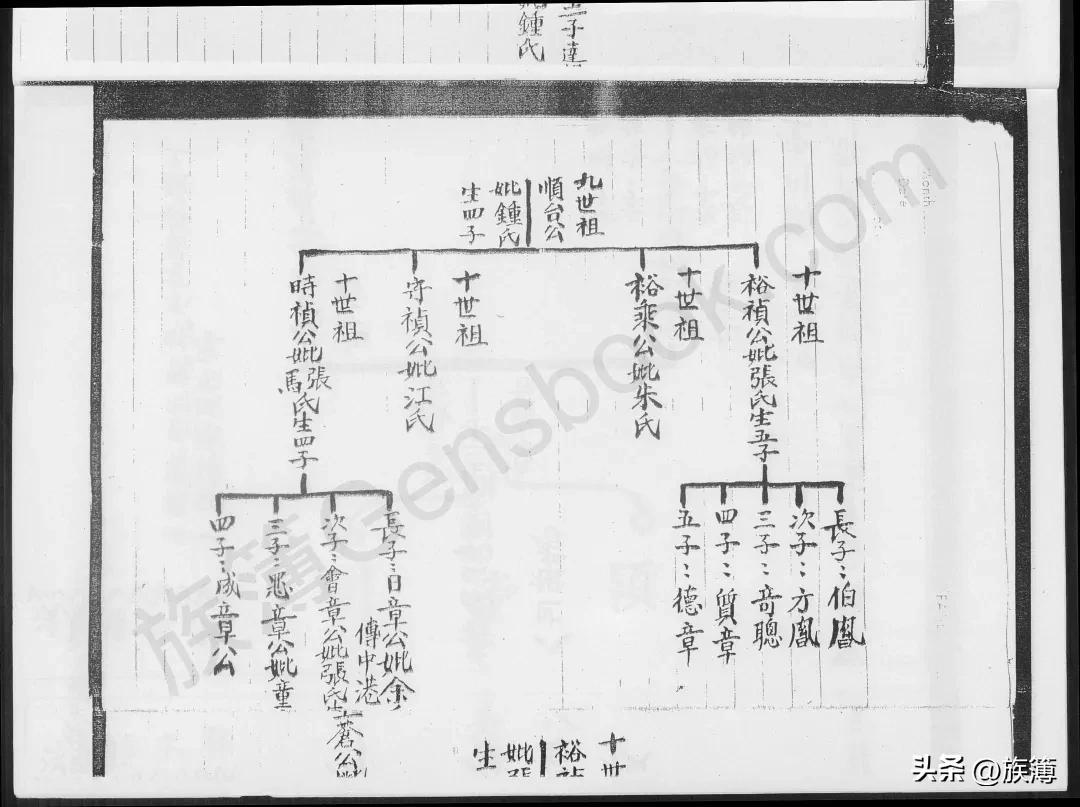 三子達
妣鍾氏
九世祖
順台公
妣鍾氏
生四子
十世祖
裕禎公妣張氏生五子
十世祖
裕乘公妣朱氏
十世祖
守禎公妣江氏
十世祖
時禎公妣張
馬氏生四子
長子：伯鳳
次子：方鳳
三子：奇聰
四子：質章
五子：德章
長子：日章公妣余
傳中港
次子：會章公妣張氏生
蒼公妣
三子：章公妣童
四子：成章公
十世
裕禎
妣張
生
族簿@Gensbook.com
头条 @族簿